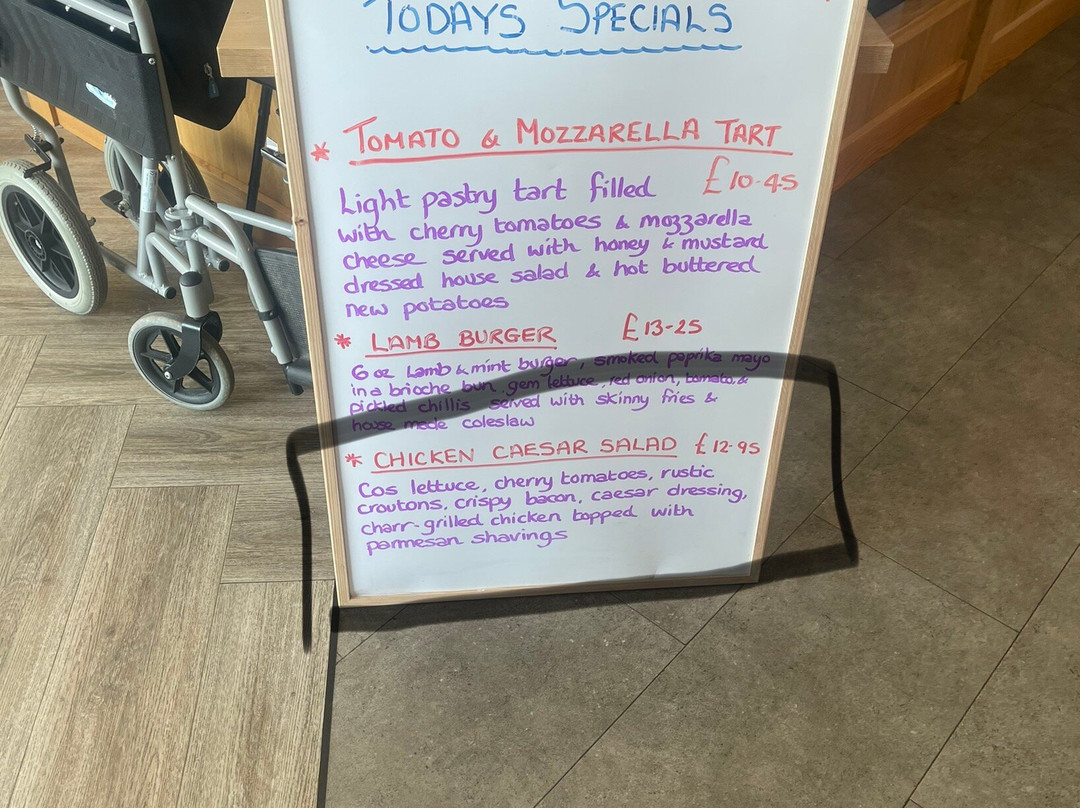 TODAYS SPECIALS
* TOMATO & MOZZARELLA TART
Light pastry tart filled £10-45
with cherry tomatoes & mozzarella
cheese served with honey & mustard
dressed house salad & hot buttered
new potatoes
* LAMB BURGER £13-25
6 oz Lamb & mint burger, smoked paprika mayo
in a brioche bun, gem lettuce, red onion, tomato, &
pickled chillis served with skinny fries &
house made coleslaw
* CHICKEN CAESAR SALAD £12-95
Cos lettuce, cherry tomatoes, rustic
croutons, crispy bacon, caesar dressing,
charr-grilled chicken topped with
parmesan shavings